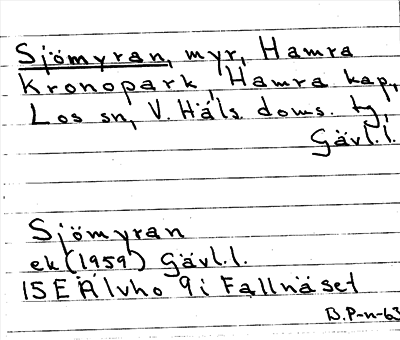 Sjömyran, myr, Hamra
Kronopark, Hamra kap,
Los sn, V. Häls. doms. tg
Gävl.l.
Sjömyran
ek (1959) Gävl.l.
15E Älvho 9i Fallnäset
B.P-n-63